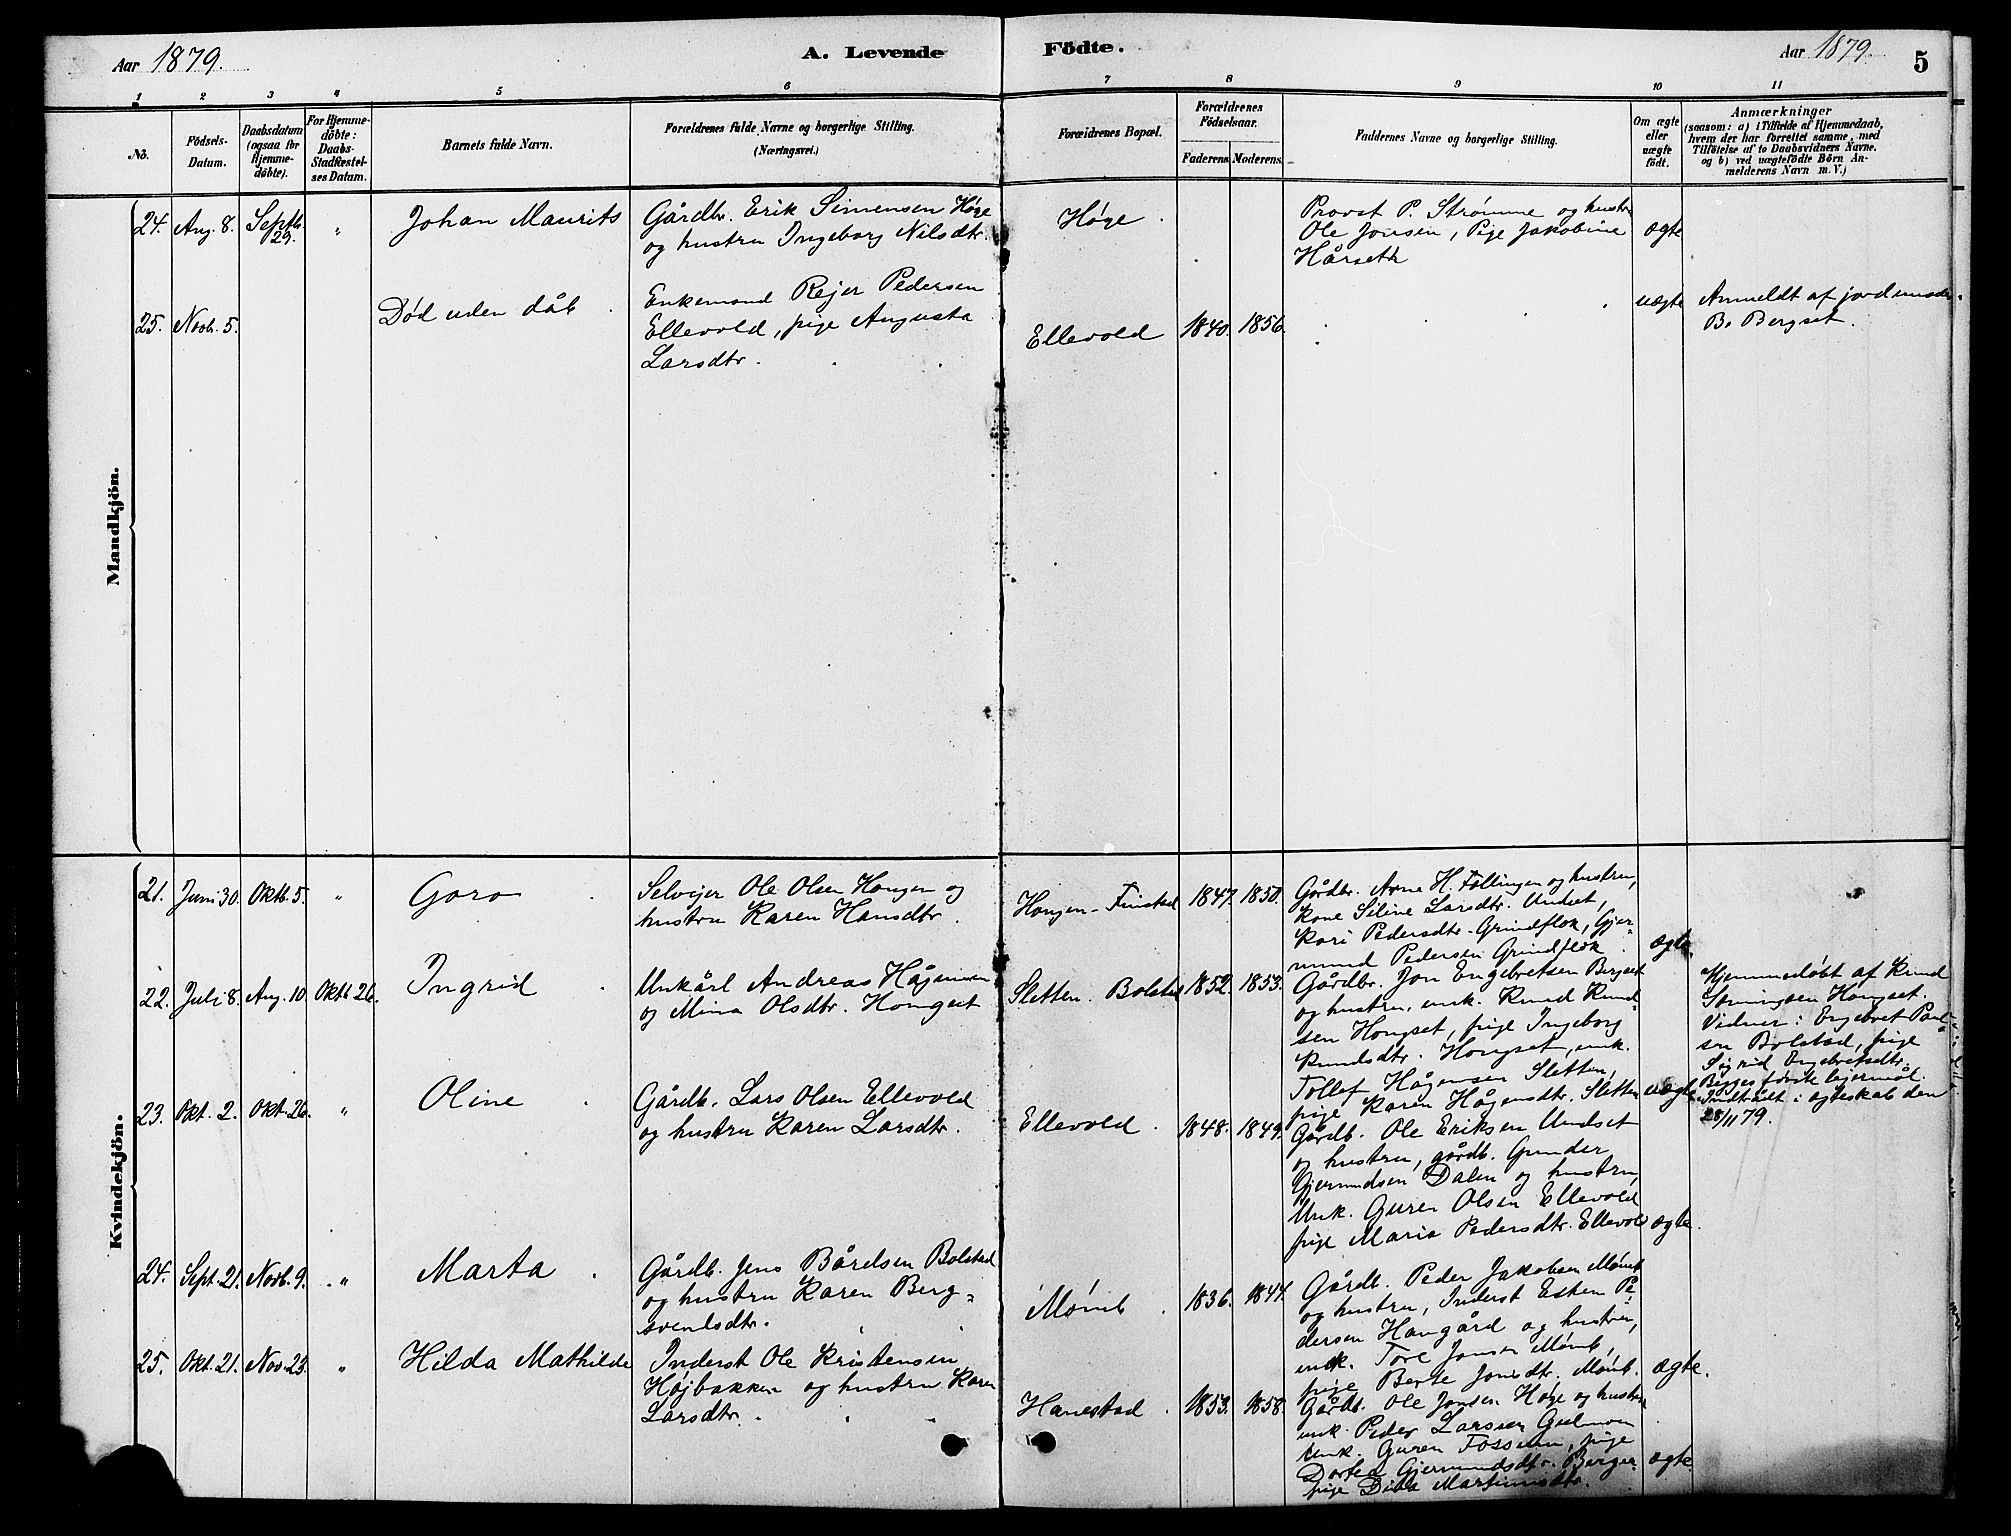 Aar 1879.
A. Levende
Födte.
Aar 1879.
5
1 2 3 4 5 6 7 8 9 10 11
No.
Födsels-
Datum.
Daabsdatum
(ogsaa for
Hjemme-
döbte).
For Hjemme-
döbte:
Daabs-
Stadfæstel-
ses Datum.
Barnets fulde Navn.
Forældrenes fulde Navne og borgerlige Stilling.
(Næringsvei.)
Forældrenes Bopæl.
Forældrenes
Födselsaar.
Faderens. Moderens.
Faddernes Navne og borgerlige Stilling.
Om ægte
eller
uægte
födt.
Anmærkninger
(saasom: a) i Tilfælde af Hjemmedaab,
hvem der har forrettet samme, med
Tilföielse af to Daabsvidners Navne.
og b) ved uægtefödte Börn An-
melderens Navn m. V.)
Mandkjön.
24. Aug. 8. Septb.
29. "
Johan Maurits
Gårdbr. Erik Simensen Høge
og hustru Ingeborg Nilsdtr.
Høge
Provst P. Strømme og hustru
Ole Jonsen, Pige Jakobine
Hårseth
ægte
25. Novb. 5.
Død uden dåb
Enkemand Rejer Pedersen
Ellevold, pige Augusta
Larsdtr.
Ellevold 1840. 1856.
uægte
Anmeldt af jordmoder
B. Bergset.
Kvindekjön.
21. Juni 30. Oktb. 5. "
Goro
Selvejer Ole Olsen Hongen og
hustru Karen Hansdtr.
Hongen-Finstad 1847. 1850.
Gårdbr. Arne H. Føllingen og hustru,
kone Seline Larsdtr. Undset,
Kari Pedersdtr. Grindflek, Gjer-
mund Pedersen Grindflek
ægte
22. Juli 8. Aug. 10. Oktb. 26.
Ingrid
Unkårl Andreas Hågensen
og Mina Olsdtr. Hongset
Sletten. Bolstad 1852. 1853.
Gårdbr. Jon Engebretsen Bergset
og hustru, unk. Knud Knud
sen Hongset, pige Ingeborg
Knudsdtr. Hongset, unk.
Tollef Hågensen Sletten,
pige Karen Hågensdtr. Sletten
uægte
Hjemmedøbt af Knud
Hongset.
Vidner: Engebret Paul-
sen Bolstad, pige
Sigrid Engebretsdtr.
Begges første lejermål.
Indtrådt i ægteskab den
28/11 79.
23. Okt. 2. Okt. 26. "
Oline
Gårdb. Lars Olsen Ellevold
og hustru Karen Larsdtr.
Ellevold 1848. 1849.
Gårdb. Ole Eriksen Undset
og hustru, gårdb. Gunder
Gjermundsen Dalen og hustru,
Unk. Guren Olsen Ellevold
pige Marie Pedersdtr. Ellevold
ægte.
24. Sept. 21. Novb. 9. "
Marta
Gårdb. Jens Bårdsen Bolstad
og hustru Karen Berg-
svendsdtr.
Mømb 1836. 1844.
Gårdb. Peder Jakobsen Mømb
og hustru, Inderst Esten Pe-
dersen Haugård og hustru,
unk. Tore Jonsen Mømb,
pige Berte Jonsdtr. Mømb.
ægte.
25. Okt. 21. Nov. 23. "
Hilda Mathilde
Inderst Ole Kristensen
Højbakken og hustru Karen
Larsdtr.
Hanestad 1853. 1858.
Gårdb. Ole Jonsen Høge og hustru
unk. Peder Larsen
unk. Guren Fossum, pige
Dortea Gjermundsdtr. Berger
pige
ægte.